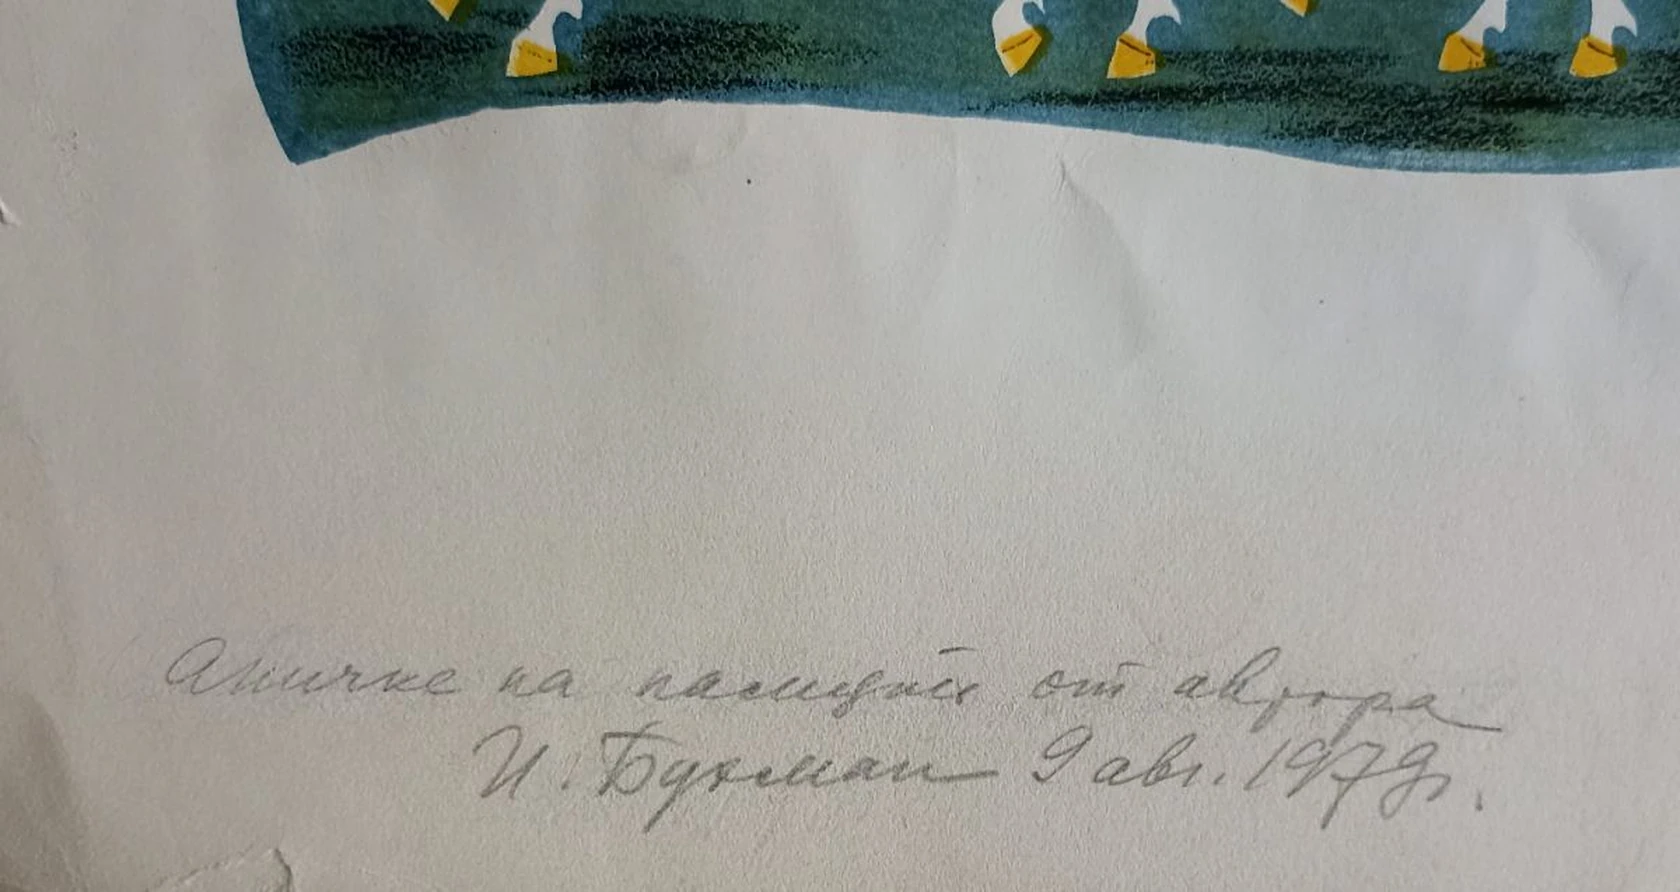 Аничке на память от автора
И. Бухман 9 авг. 1979г.